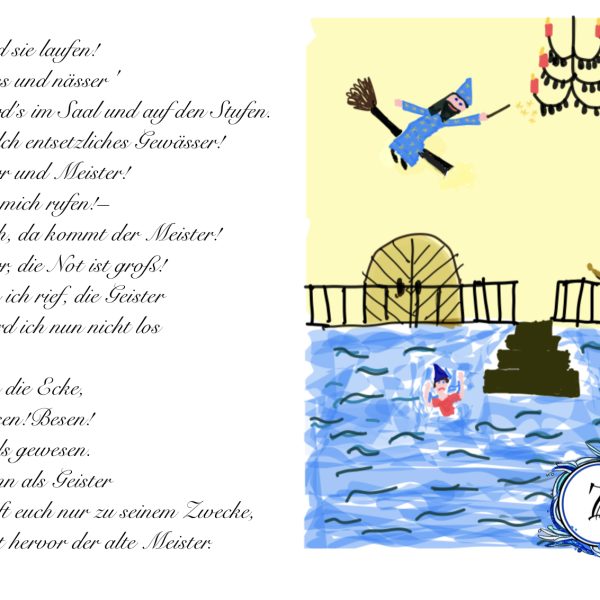 sie laufen!
und nässer'
im Saal und auf den Stufen.
entsetzliches Gewässer!
und Meister!
mich rufen!–
da kommt der Meister!
die Not ist groß!
ich rief, die Geister
ich nun nicht los
die Ecke,
Besen!
gewesen.
als Geister
euch nur zu seinem Zwecke,
hervor der alte Meister.
7